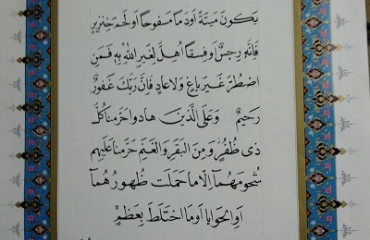 يَكُونَ مَيْتَةً اَوْ دَمًا مَسْفُوحًا اَوْ لَحْمَ خِنْزيرٍ
فَاِنَّهُ رِجْسٌ اَوْ فِسْقًا اُهِلَّ لِغَيْرِ اللّٰهِ بِه فَمَنِ
اضْطُرَّ غَيْرَ باغٍ وَلا عادٍ فَاِنَّ رَبَّكَ غَفُورٌ
رَحيمٌ وَعَلَى الَّذينَ هادُوا حَرَّمْنا كُلَّ
ذى ظُفُرٍ وَمِنَ الْبَقَرِ وَالْغَنَمِ حَرَّمْنا عَلَيْهِمْ
شُحُومَهُمآ اِلّا ما حَمَلَتْ ظُهُورُهُمآ
اَوِ الْحَوايا اَوْ مَا اخْتَلَطَ بِعَظْمٍ